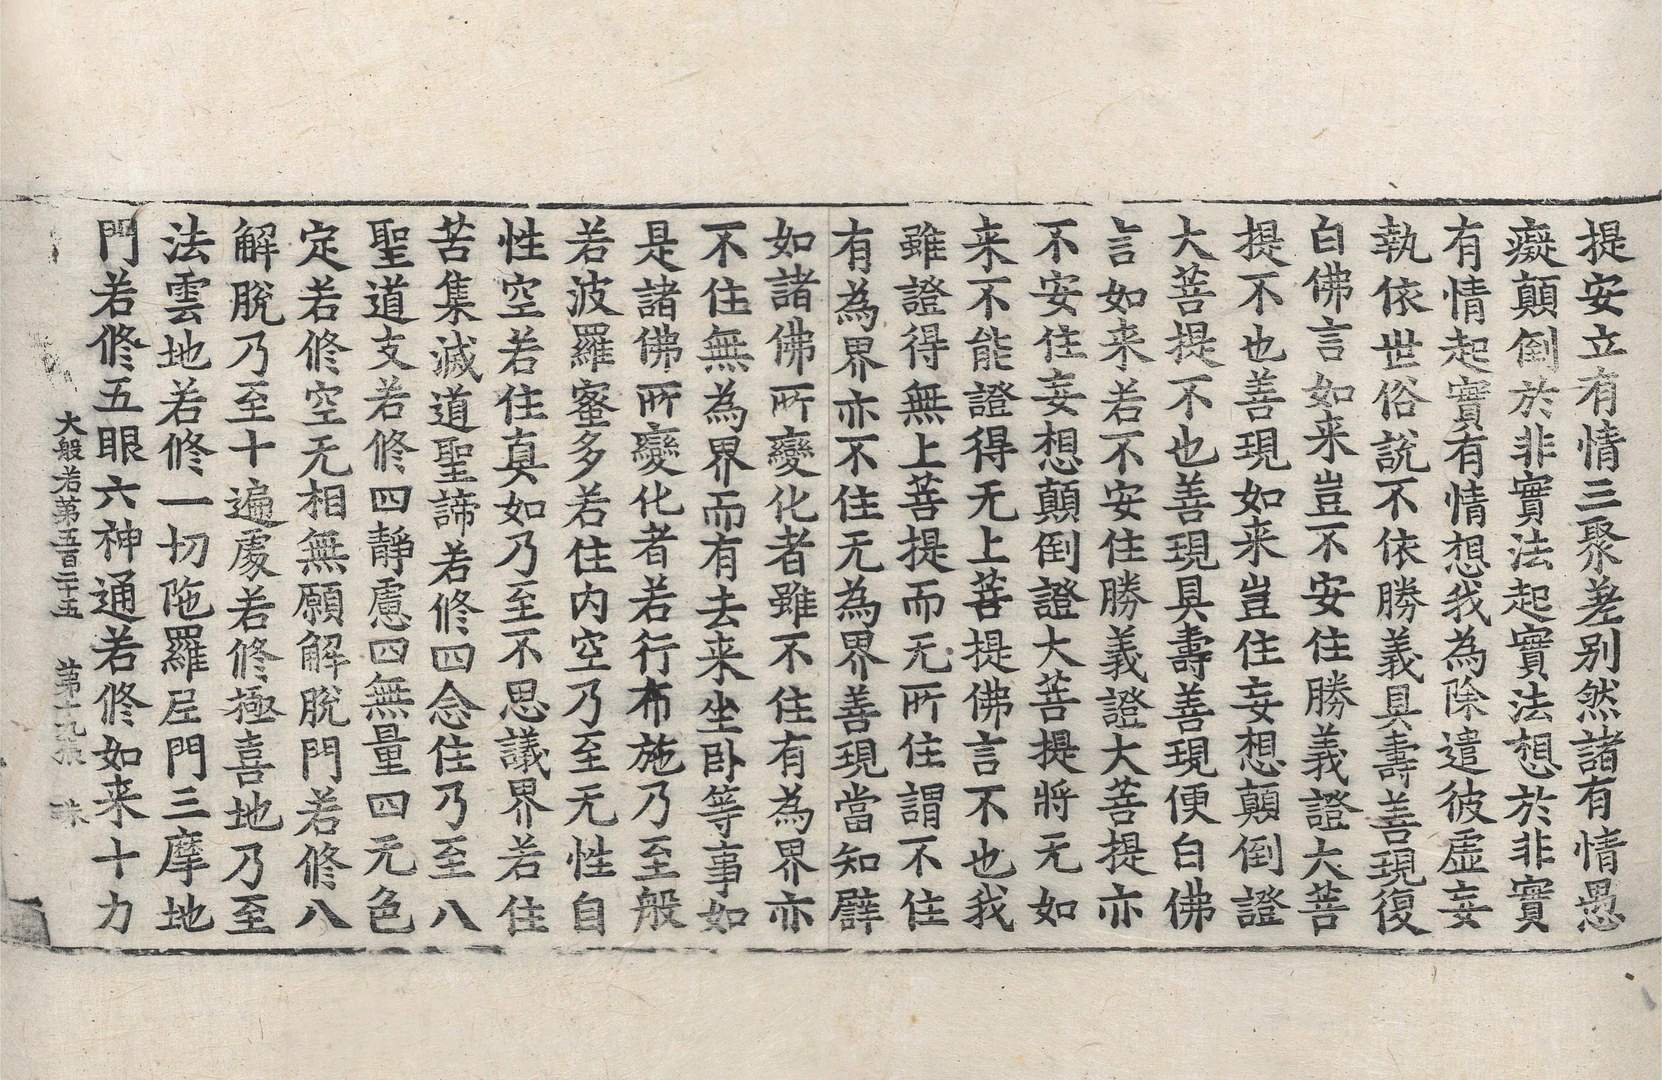 提安立有情三聚差别然諸有情愚
癡顛倒於非實法起實法想於非實
有情起實有情想我為除遣彼虛妄
執依世俗說不依勝義具壽善現復
白佛言如来豈不安住勝義證大菩
提不也善現如来豈住妄想顛倒證
大菩提不也善現具壽善現便白佛
言如来若不安住勝義證大菩提亦
不安住妄想顛倒證大菩提將无如
来不能證得无上菩提佛言不也我
雖證得無上菩提而无所住謂不住
有為界亦不住无為界善現當知譬
如諸佛所變化者雖不住有為界亦
不住無為界而有去来坐卧等事如
是諸佛所變化者若行布施乃至般
若波羅蜜多若住内空乃至无性自
性空若住真如乃至不思議界若住
苦集滅道聖諦若修四念住乃至八
聖道支若修四靜慮四無量四无色
定若修空无相無願解脫門若修八
解脫乃至十遍處若修極喜地乃至
法雲地若修一切陁羅尼門三摩地
門若修五眼六神通若修如来十力
大般若第五百二十五 第十九张